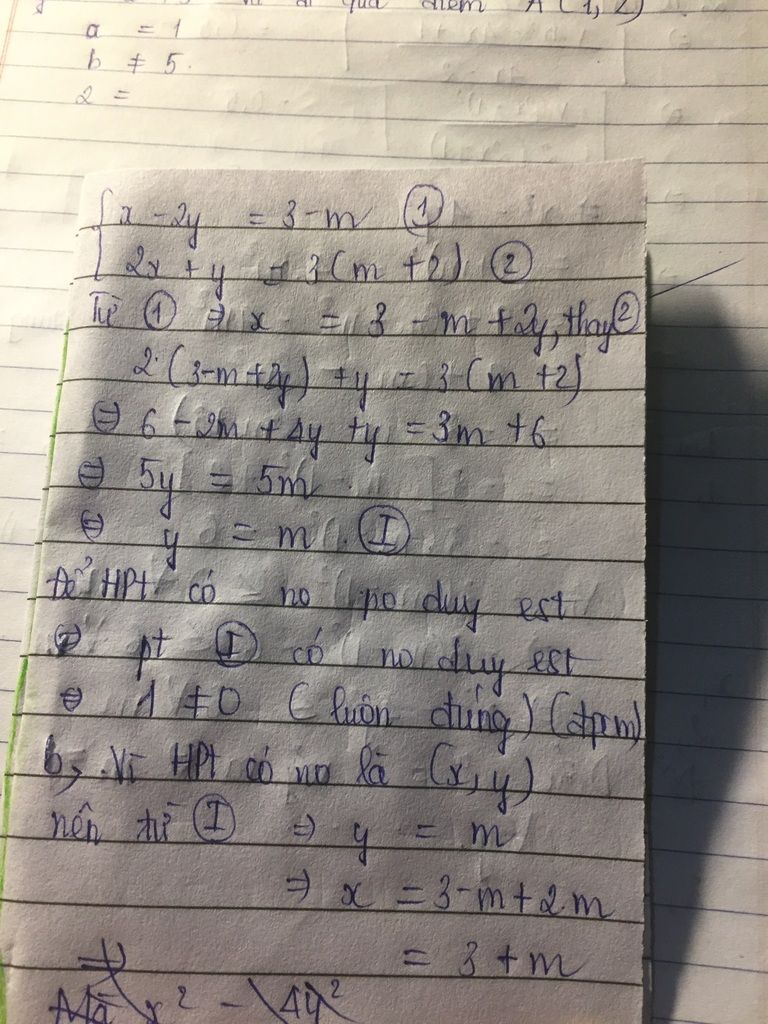 đi qua điểm A (1, 2)
a = 1
b ≠ 5
2 =
{ x - 2y = 3 - m ①
2x + y = 3 (m + 2) ②
Từ ① ⇒ x = 3 - m + 2y, thay ②
2. (3 - m + 2y) + y = 3 (m + 2)
⇔ 6 - 2m + 4y + y = 3m + 6
⇔ 5y = 5m
⇔ y = m. Ⓘ
Để HPt có no no duy est
⇔ pt Ⓘ có no duy est
⇔ 1 ≠ 0 (luôn đúng) (đpcm)
b, Vì HPt có no là (x, y)
nên từ Ⓘ ⇒ y = m
⇒ x = 3 - m + 2m
= 3 + m
Mà x² - 4y²